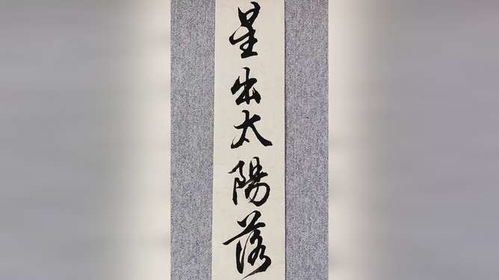 星出太陽落